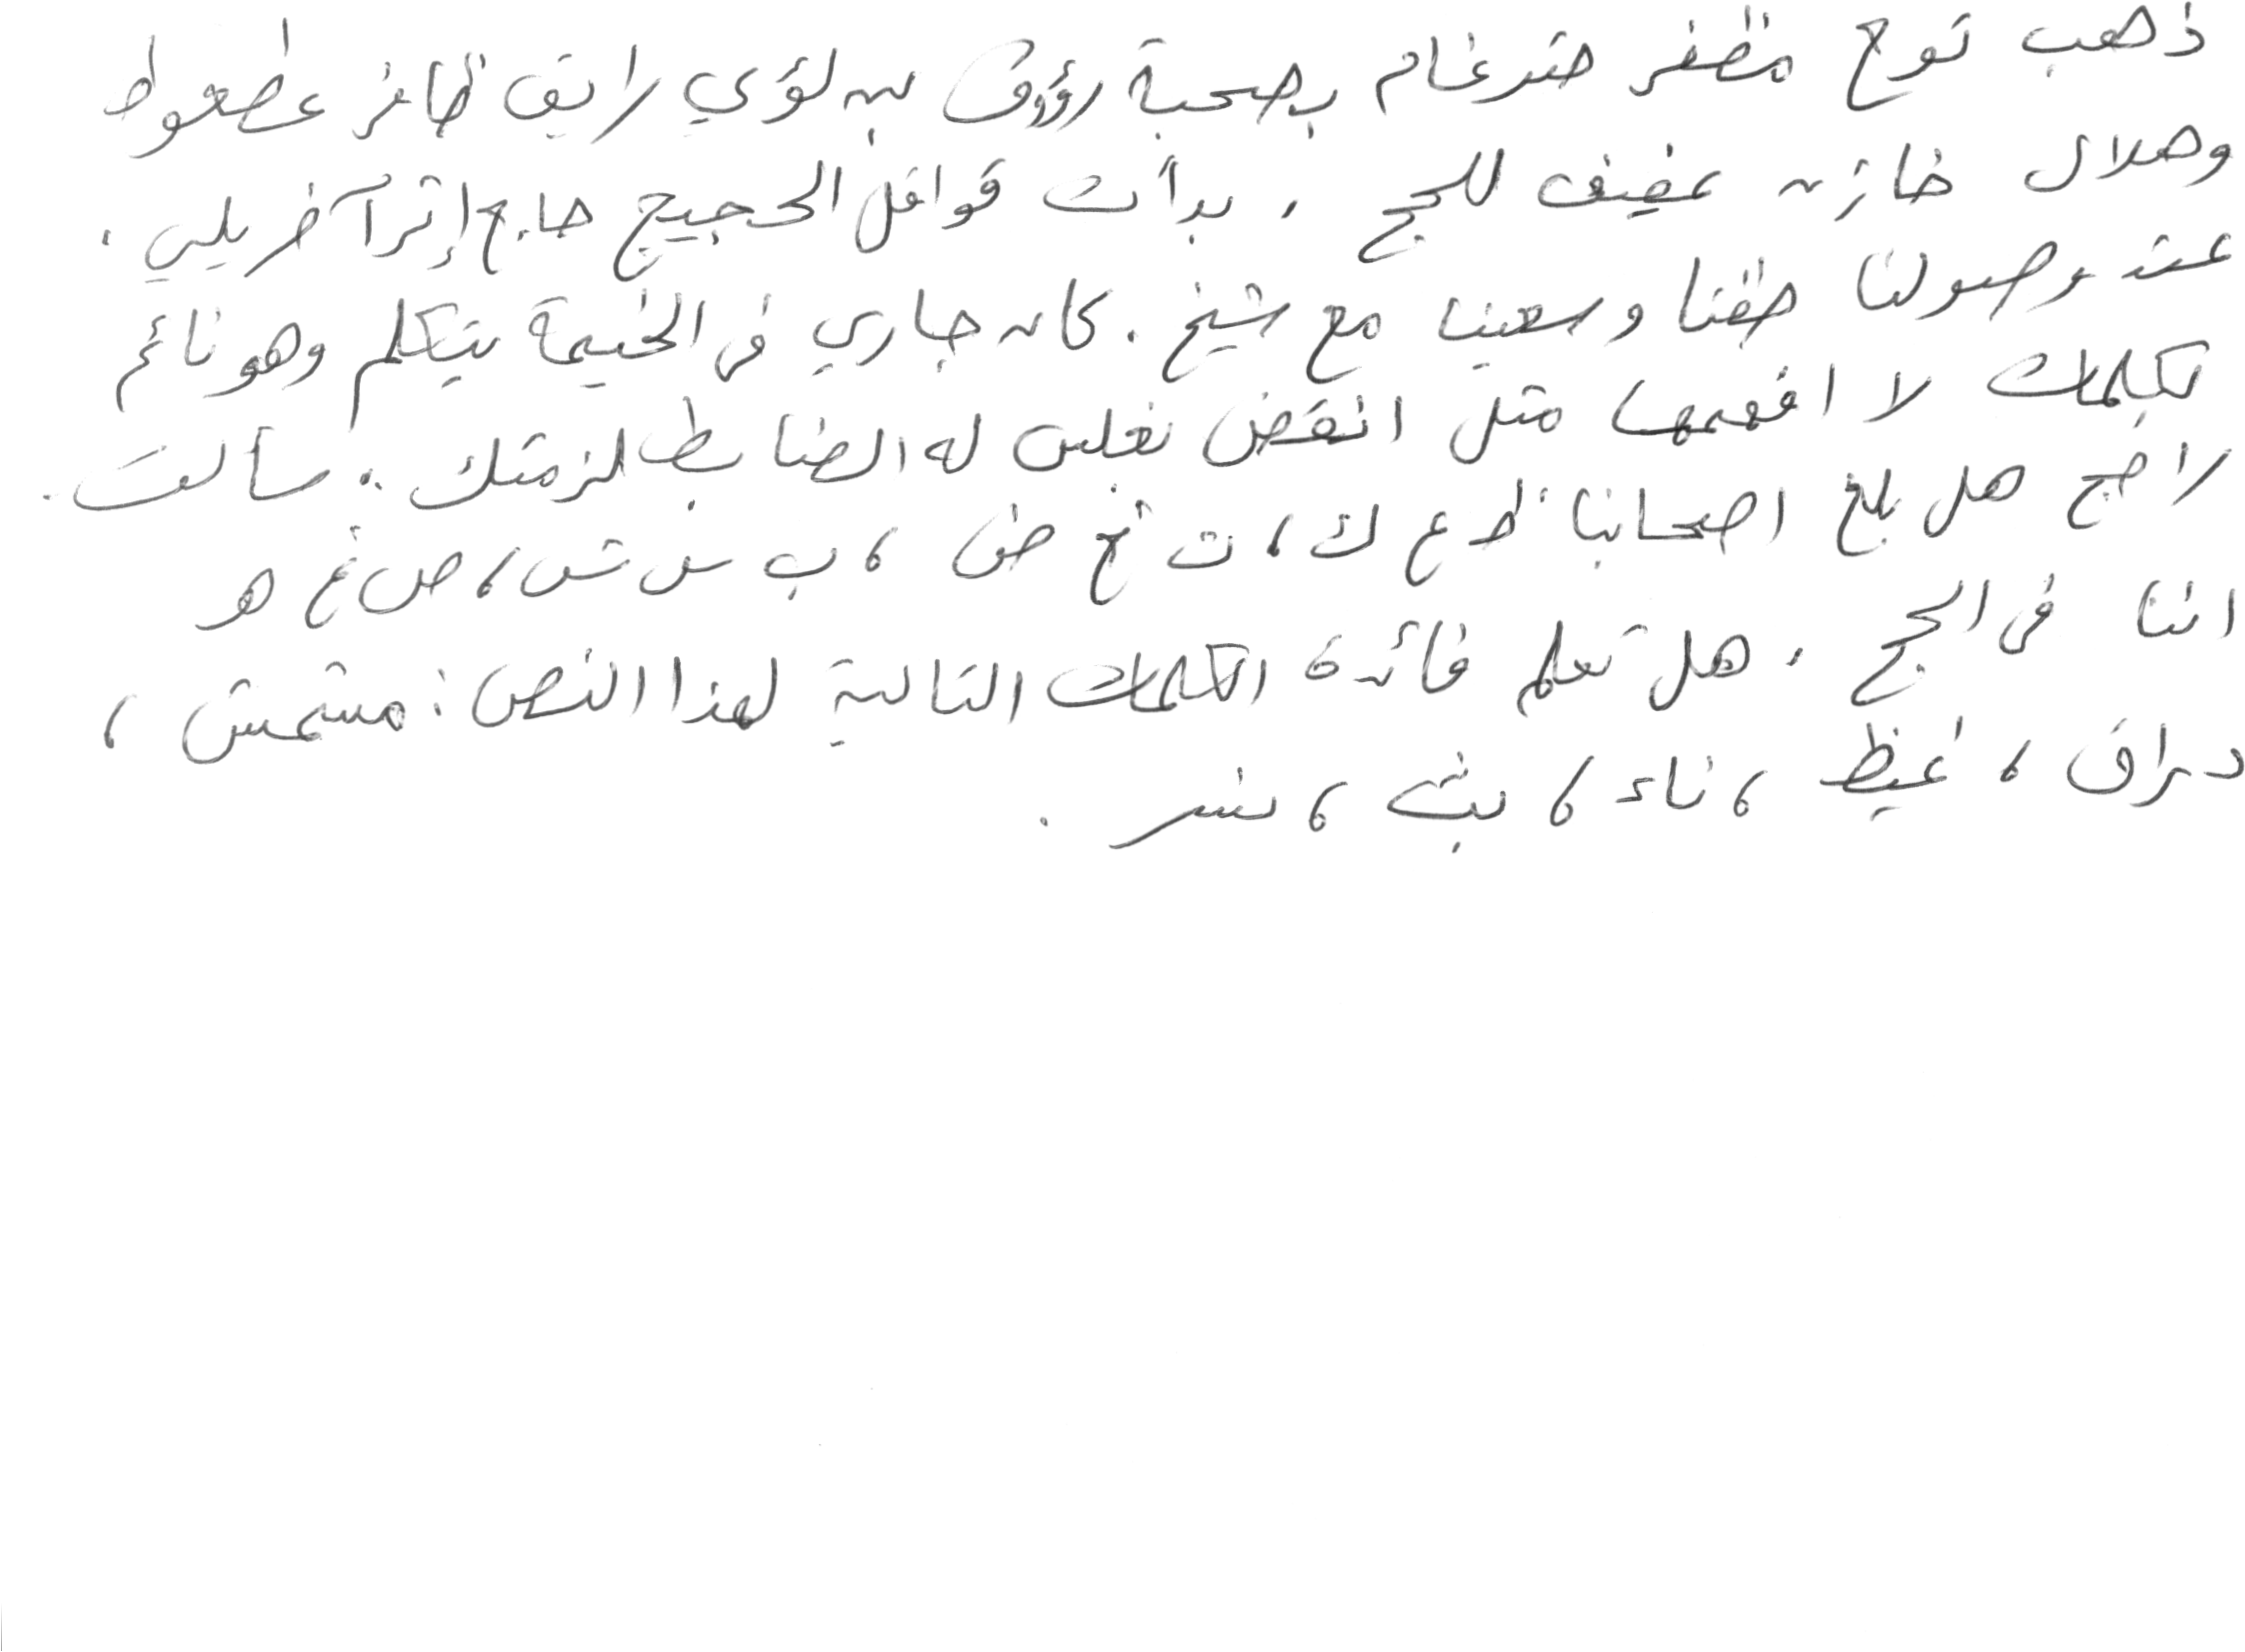 ذهب نوح مظفر ضرغام بصحبة رؤوف بن لؤي رايق ظافر عطعوط
وهلال خازن عفيف للحج . بدأت قوافل الحجيج حاج إثر آخر يلبي .
عند وصولنا طفنا وسعينا مع شيخ . كان جاري في الخيمة يتكلم وهو نائم
بكلمات لا افهمها مثل انقض نغلس له الضابط لزمتك . سألت
راجح هل بلغ اصحابنا ظ ع ك ، ث خ ض ، ب س ش ، ص غ هـ
اننا في الحج . هل تعلم فائدة الكلمات التالية لهذا النص : مشمش ،
دراق ، غيظ ، ناء ، بث ، نسر .